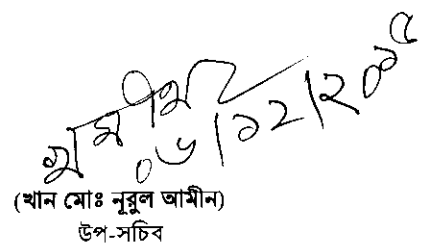 ০৬/১২/২০১৫
(খান মোঃ নূরুল আমীন)
উপ-সচিব